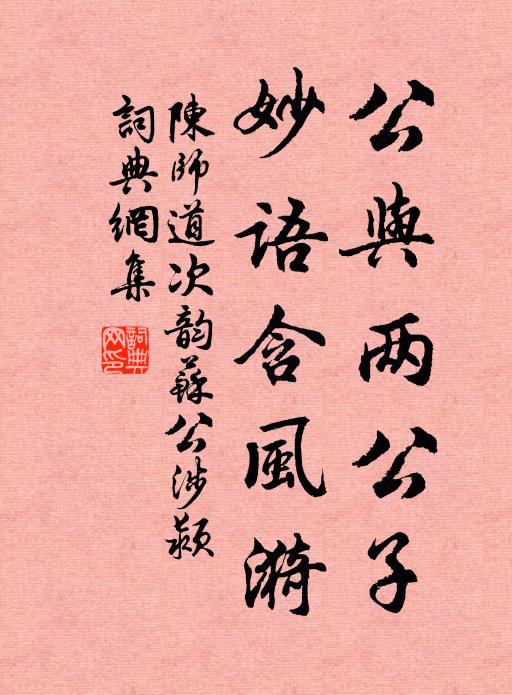 公與两公子
妙語含風漪
陳師道次韵蘇公涉颍
詞典網集
詞典
网印